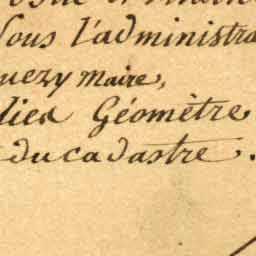 Sous l'administra
uezy Maire,
died Géomètre
du cadastre.